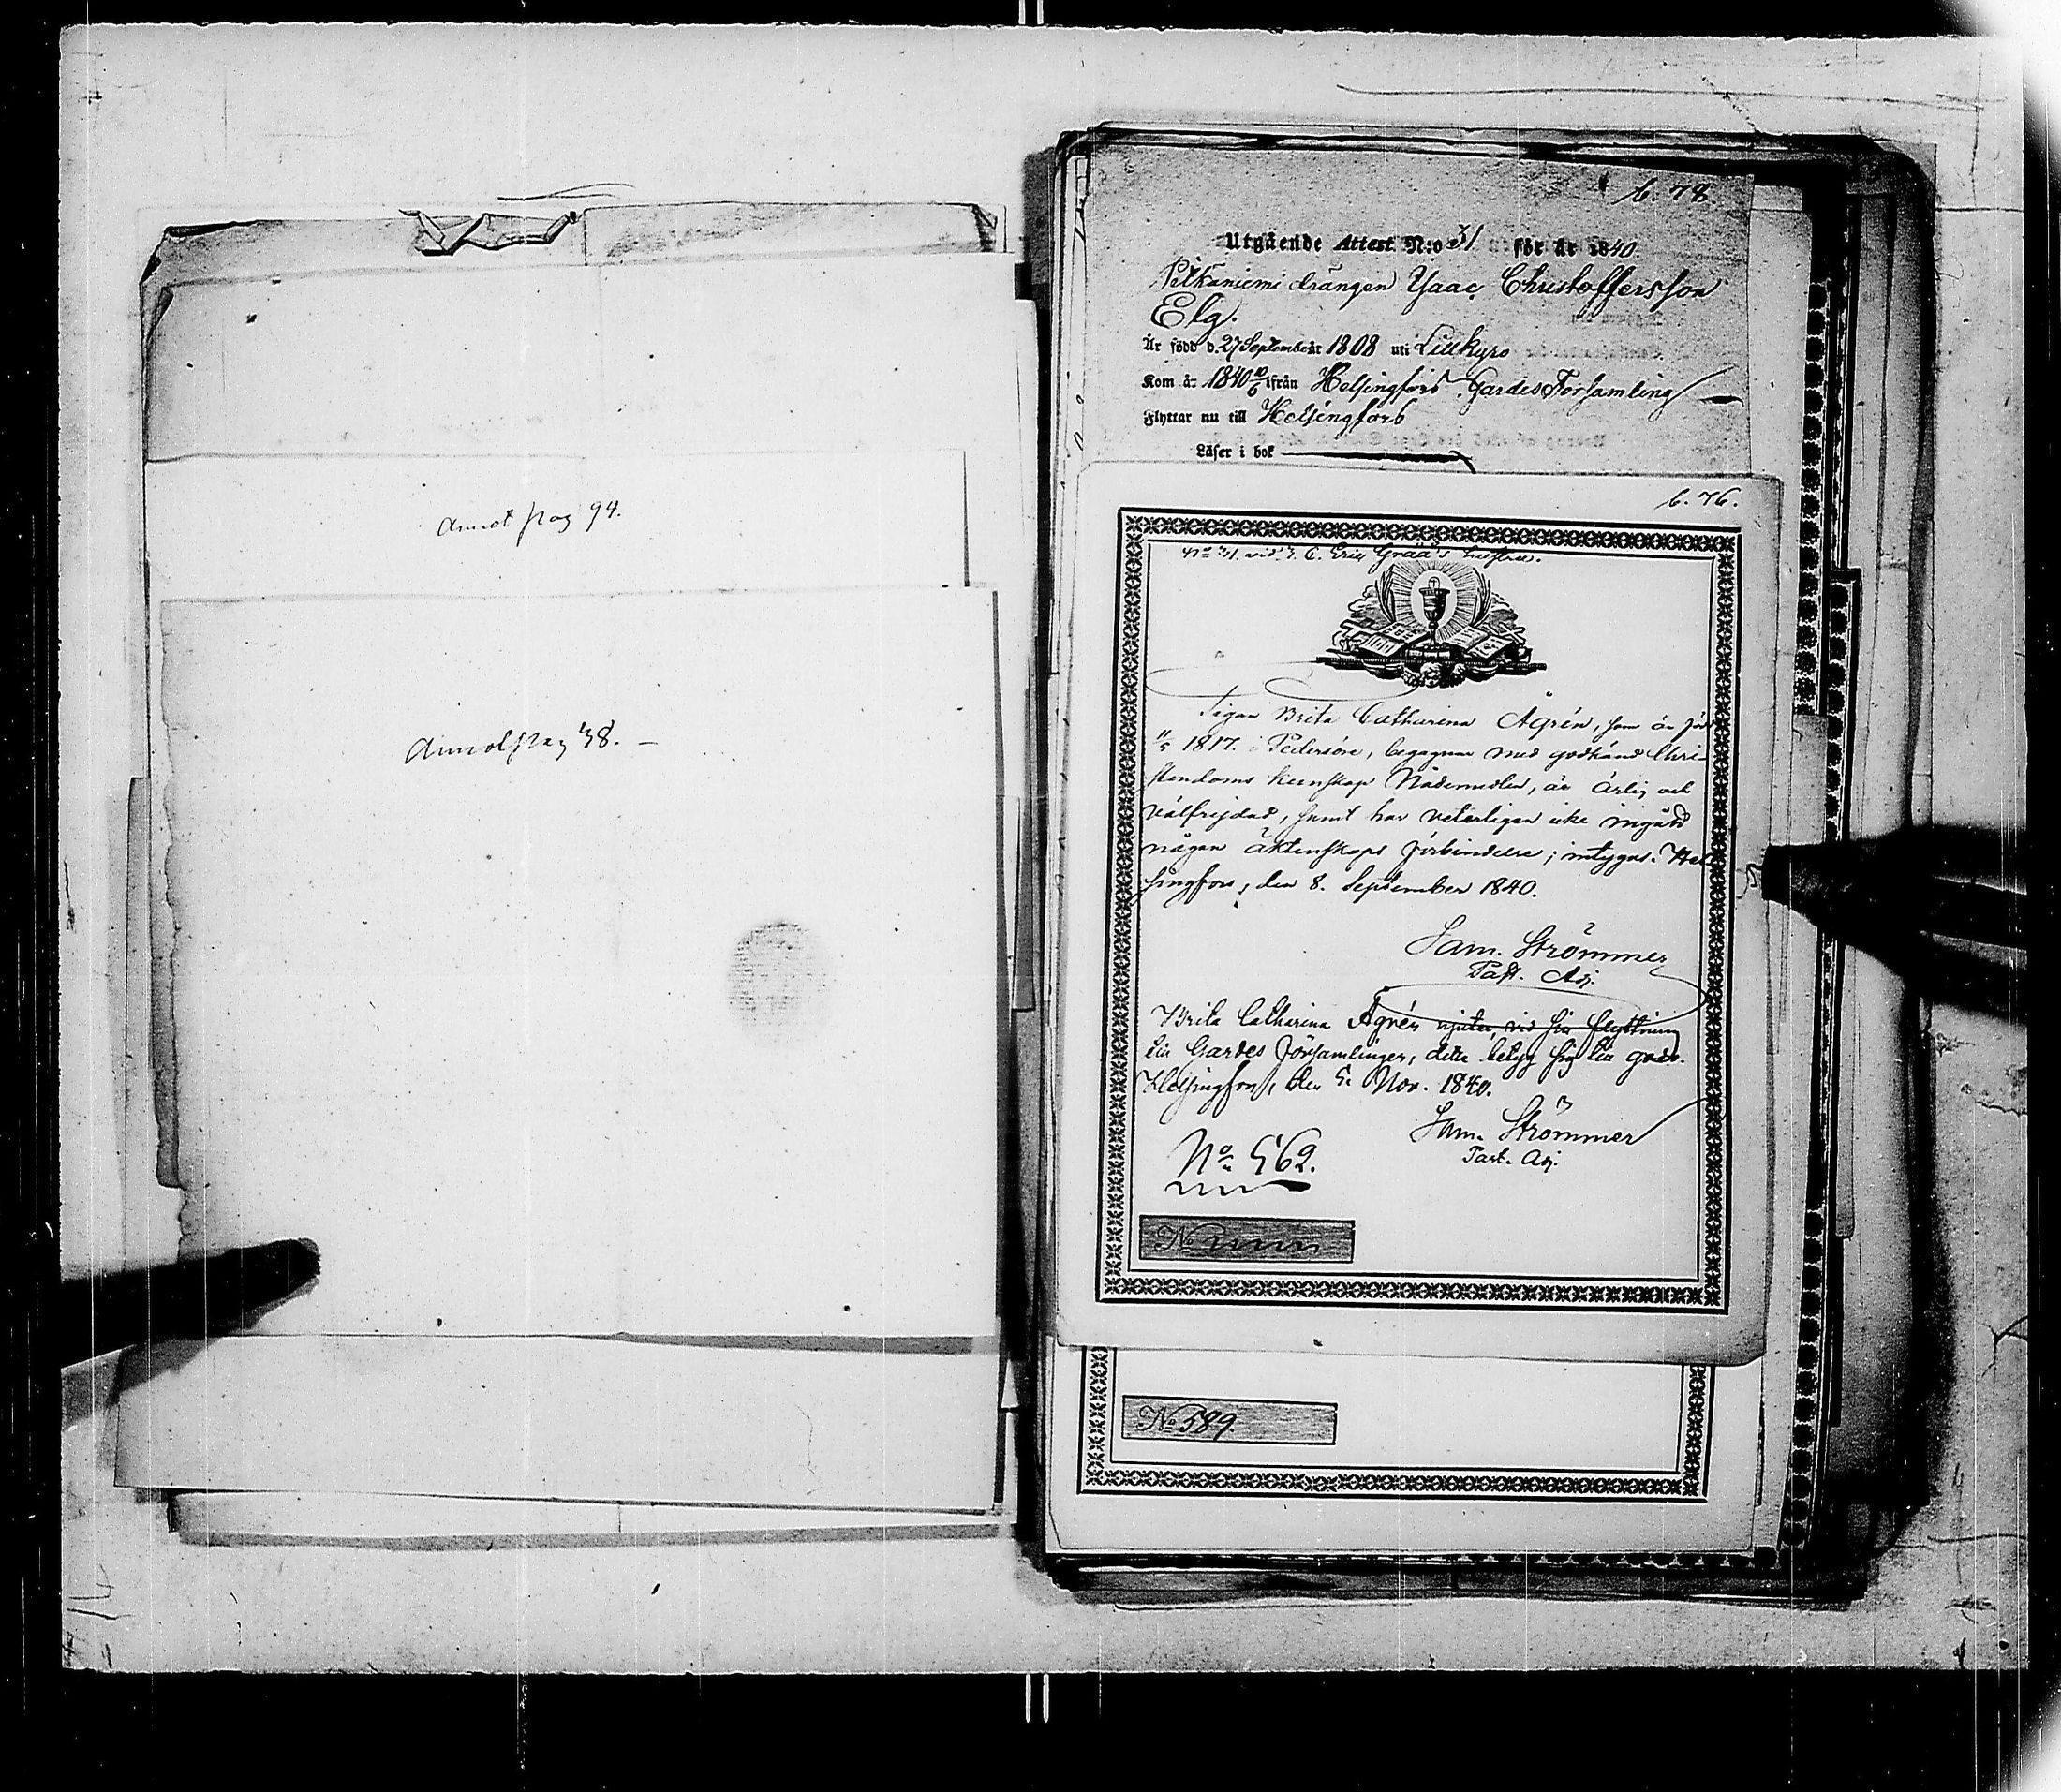 Annot pag 94.
Annot pag 38. –
b. 78.
Utgående Attest N:o 31 för år 1840.
drängen Isaac Christoffersson
Elg.
Är född d. 27 September 1808 uti Lillkyro
Kom år 1840 10/6 ifrån Helsingfors Gardes Församling
Flyttar nu till Helsingfors
Läser i bok
b. 76.
No 31. vid 3. C. Eric Grää's hustru.
Pigan Brita Catharina Ågrén, som är född
11/5 1817. i Pedersöre, begagnar med godkänd Chri-
stendoms kunskap Nådemedlen, är ärlig och
välfrejdad, samt har veterligen icke ingått
någon äktenskaps förbindelse; intygas. Hel-
singfors, den 8. September 1840.
Sam. Strömmer
Past. Adj.
Brita Catharina Ågrén njuter, vid sin flyttning
till Gardes församlingen, detta betyg sig till godo.
Helsingfors, den 5. Nov. 1840.
Sam. Strömmer
Past. Adj.
No 562.
No
No 589.